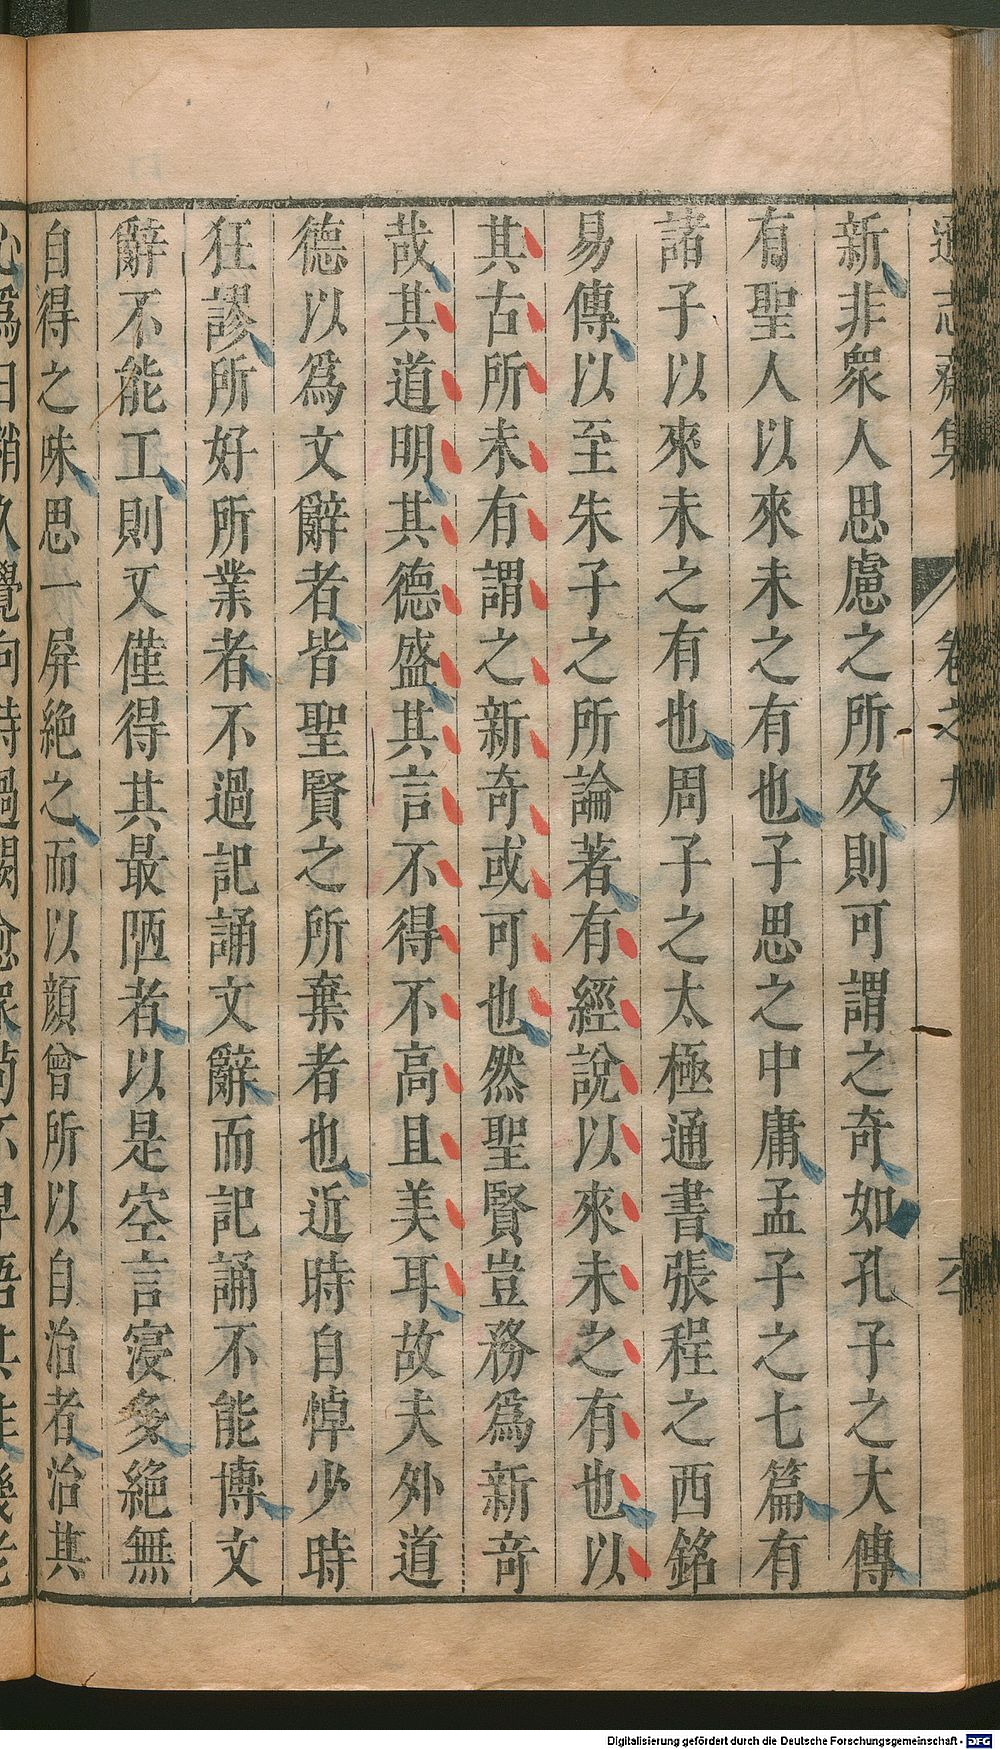 遜志齋集 卷之九
新非衆人思慮之所及則可謂之奇如孔子之大傳
有聖人以來未之有也子思之中庸孟子之七篇有
諸子以來未之有也周子之太極通書張程之西銘
易傳以至朱子之所論著有經說以來未之有也以
其古所未有謂之新奇或可也然聖賢豈務爲新奇
哉其道明其德盛其言不得不高且美耳故夫外道
德以爲文辭者皆聖賢之所棄者也近時自悼少時
狂謬所好所業者不過記誦文辭而記誦不能博文
辭不能工則又僅得其最陋者以是空言寖多絶無
自得之味思一屏絶之而以顔曾所以自治者治其
Digitalisierung gefördert durch die Deutsche Forschungsgemeinschaft - DFG